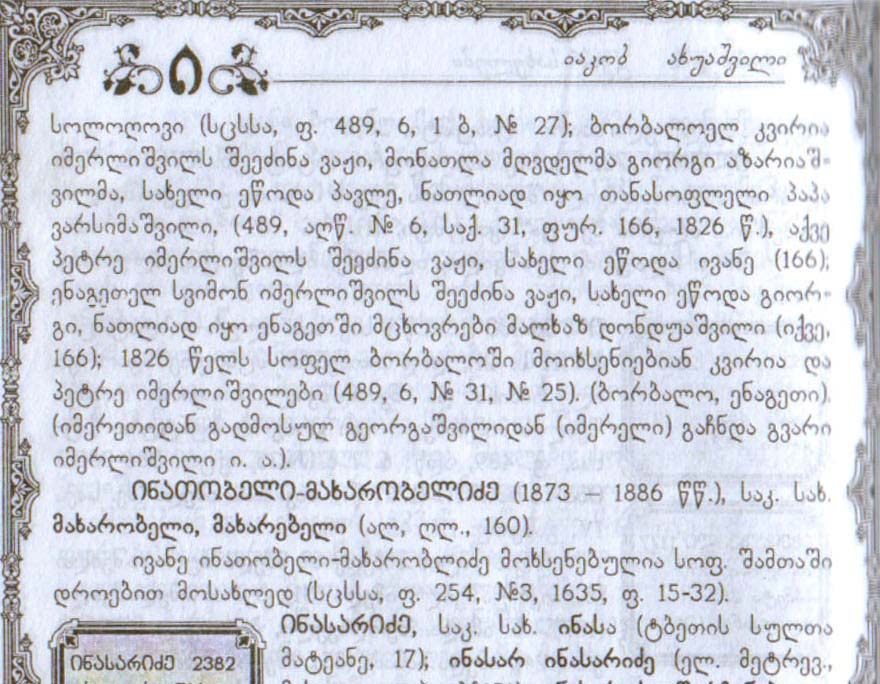 ი
იაკობ ახუაშვილი
სოლოღოვი (სცსსა, ფ. 489, 6, 1 ბ, № 27); ბორბალოელ კვირია
იმერლიშვილს შეეძინა ვაჟი, მონათლა მღვდელმა გიორგი აზარიაშ-
ვილმა, სახელი ეწოდა პავლე, ნათლიად იყო თანასოფლელი პაპა
ვარსიმაშვილი, (489, აღწ. № 6, საქ. 31, ფურ. 166, 1826 წ.), აქვე
პეტრე იმერლიშვილს შეეძინა ვაჟი, სახელი ეწოდა ივანე (166);
ენაგეთელ სვიმონ იმერლიშვილს შეეძინა ვაჟი, სახელი ეწოდა გიორ-
გი, ნათლიად იყო ენაგეთში მცხოვრები მალხაზ დონდუაშვილი (იქვე,
166); 1826 წელს სოფელ ბორბალოში მოიხსენიებიან კვირია და
პეტრე იმერლიშვილები (489, 6, № 31, № 25). (ბორბალო, ენაგეთი).
(იმერეთიდან გადმოსულ გეორგაშვილიდან (იმერელი) გაჩნდა გვარი
იმერლიშვილი ი. ა.).
ინათობელი-მახარობელიძე (1873 – 1886 წწ.), საკ. სახ.
მახარობელი, მახარებელი (ალ, ღლ., 160).
ივანე ინათობელი-მახარობლიძე მოხსენებულია სოფ. შამთაში
დროებით მოსახლედ (სცსსა, ფ. 254, №3, 1635, ფ. 15-32).
ინასარიძე, საკ. სახ. ინასა (ტბეთის სულთა
ინასარიძე 2382
მატეანე, 17); ინასარ ინასარიძე (ელ. მეტრევ.,